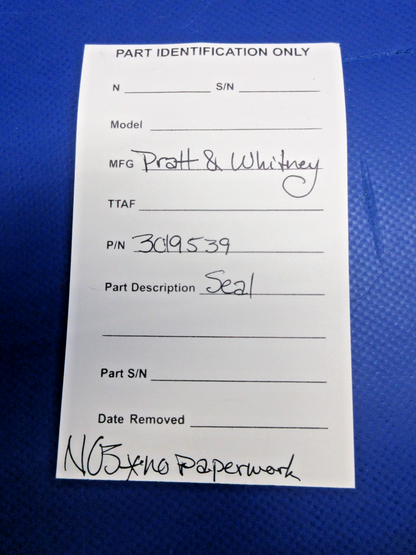 PART IDENTIFICATION ONLY
N S/N
Model
MFG Pratt & Whitney
TTAF
P/N 3019539
Part Description Seal
Part S/N
Date Removed
NOS no paperwork